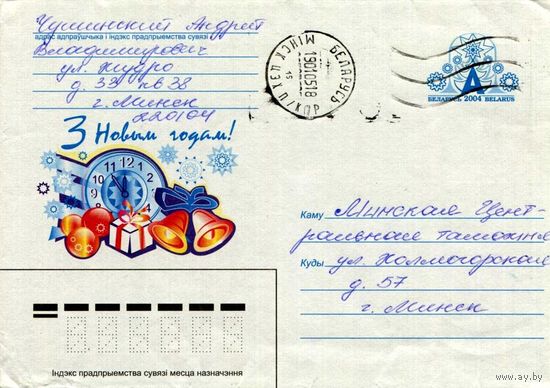 Чушинский Андрей
адрас адпраўшчыка і індэкс прадпрыемства сувязі
Владимирович
ул. Жудро
д. 33 кв 38
г. Минск
220104
З Новым годам!
МІНСК ЦЭХ
БЕЛАРУСЬ
19010518
15
А
БЕЛАРУСЬ 2004 BELARUS
Каму Минская Цент-
ральная таможня
Куды ул. Холмогорская
д. 57
г. Минск
Індэкс прадпрыемства сувязі месца назначэння
www.ay.by